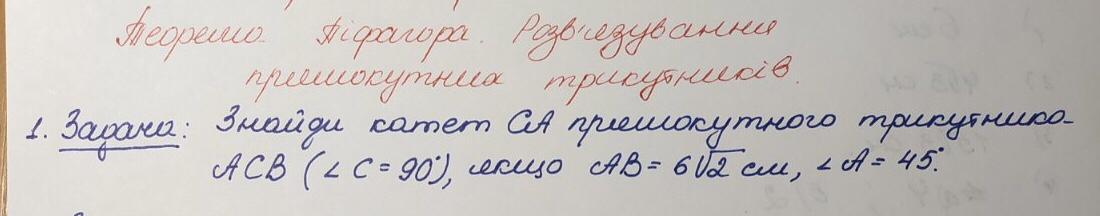 Теорема Піфагора. Розв'язування
прямокутних трикутників.
1. Задача: Знайди катет CA прямокутного трикутника
ACB (∠C = 90°), якщо AB = 6√2 см, ∠A = 45°.